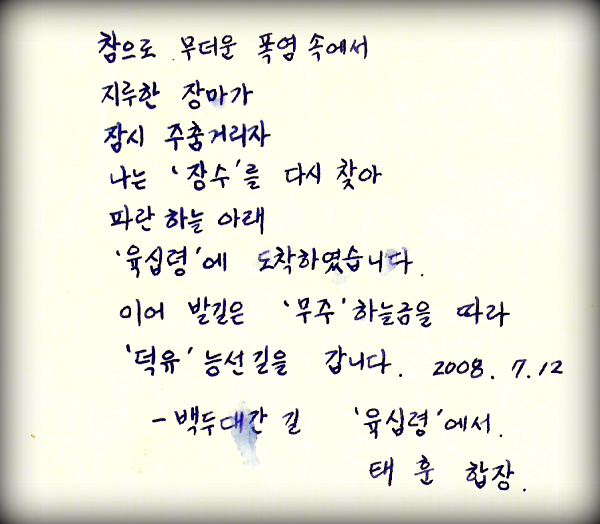 참으로 무더운 폭염 속에서
지루한 장마가
잠시 주춤거리자
나는 '장수'를 다시 찾아
파란 하늘 아래
'육십령'에 도착하였습니다.
이어 발길은 '무주' 하늘금을 따라
'덕유' 능선길을 갑니다. 2008. 7. 12
- 백두대간 길 '육십령'에서.
태훈 합장.